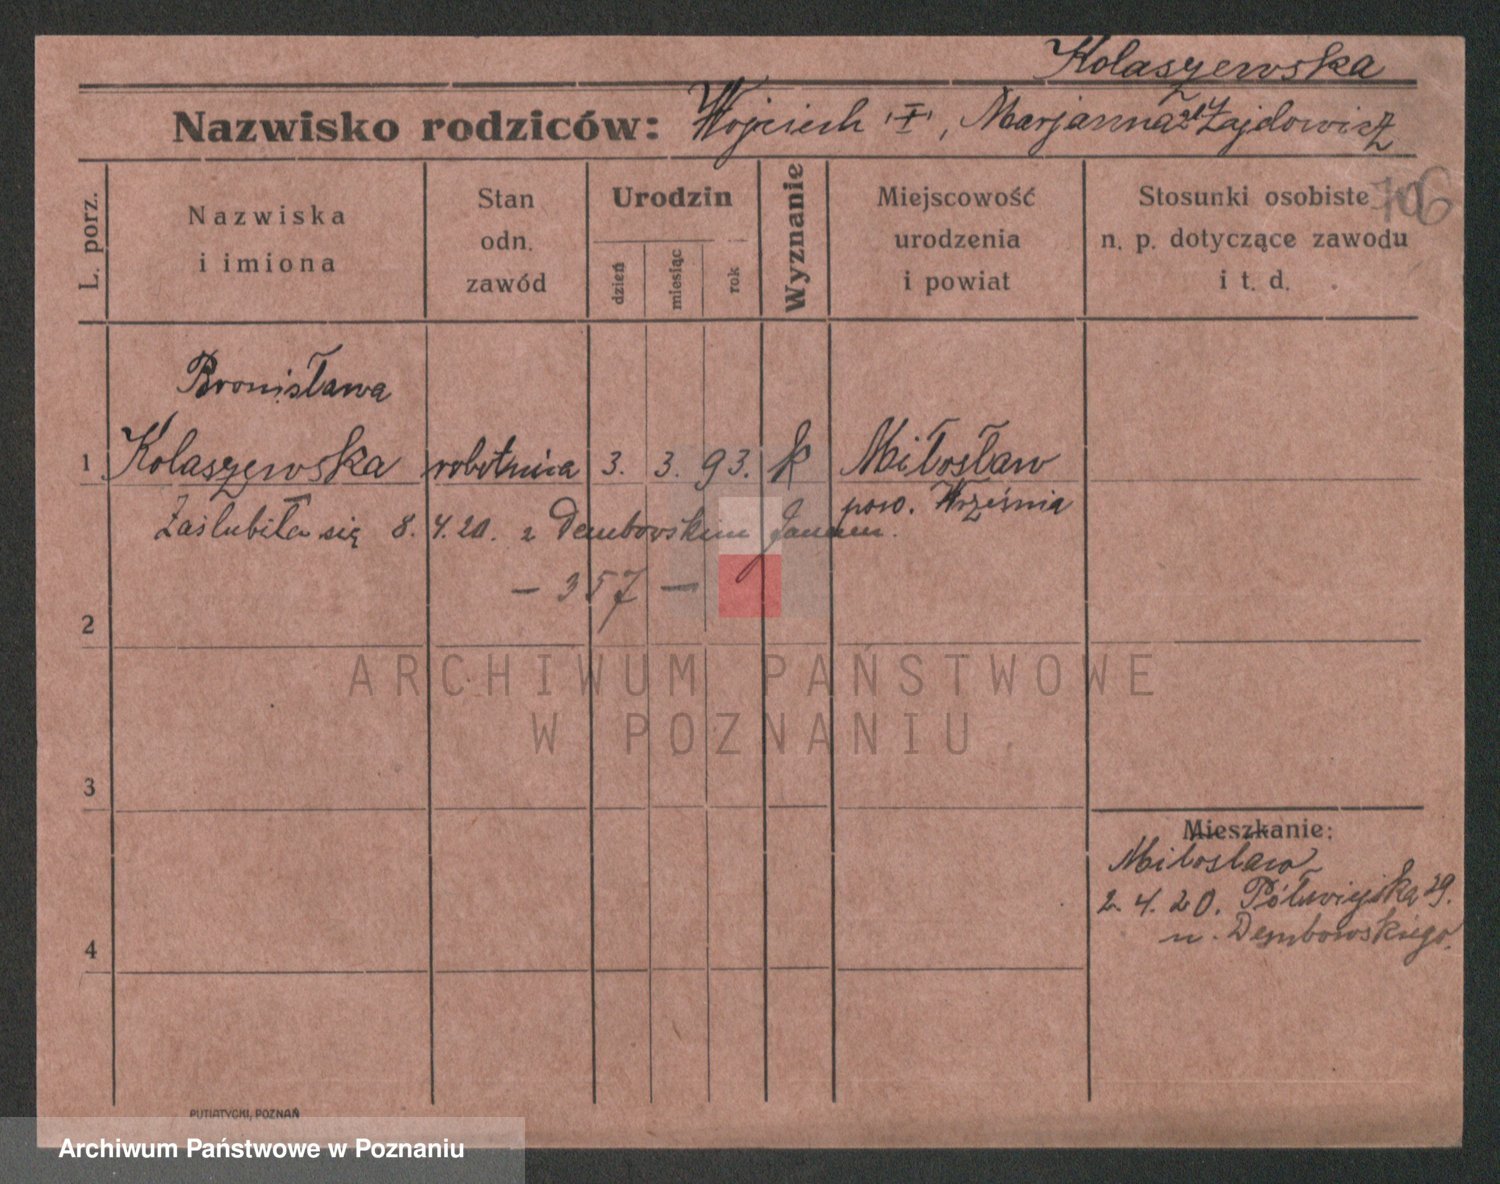 Kolaszewska
Nazwisko rodziców: Wojciech "I", Marjanna Zajdowicz
706
L. porz.
Nazwiska
i imiona
Stan
odn.
zawód
Urodzin
dzień
miesiąc
rok
Wyznanie
Miejscowość
urodzenia
i powiat
Stosunki osobiste
n. p. dotyczące zawodu
i t. d.
Bronisława
1 Kolaszewska robotnica 3. 3. 93. k Miłosław
pow. Września
Zaślubiła się 8. 4. 20. z Dembowskim Janem.
— 357 —
2
ARCHIWUM PAŃSTWOWE
W POZNANIU
3
Mieszkanie:
Miłosław
2. 4. 20. Półwiejska 29.
u. Dembowskiego.
4
PUTIATYCKI, POZNAŃ
Archiwum Państwowe w Poznaniu